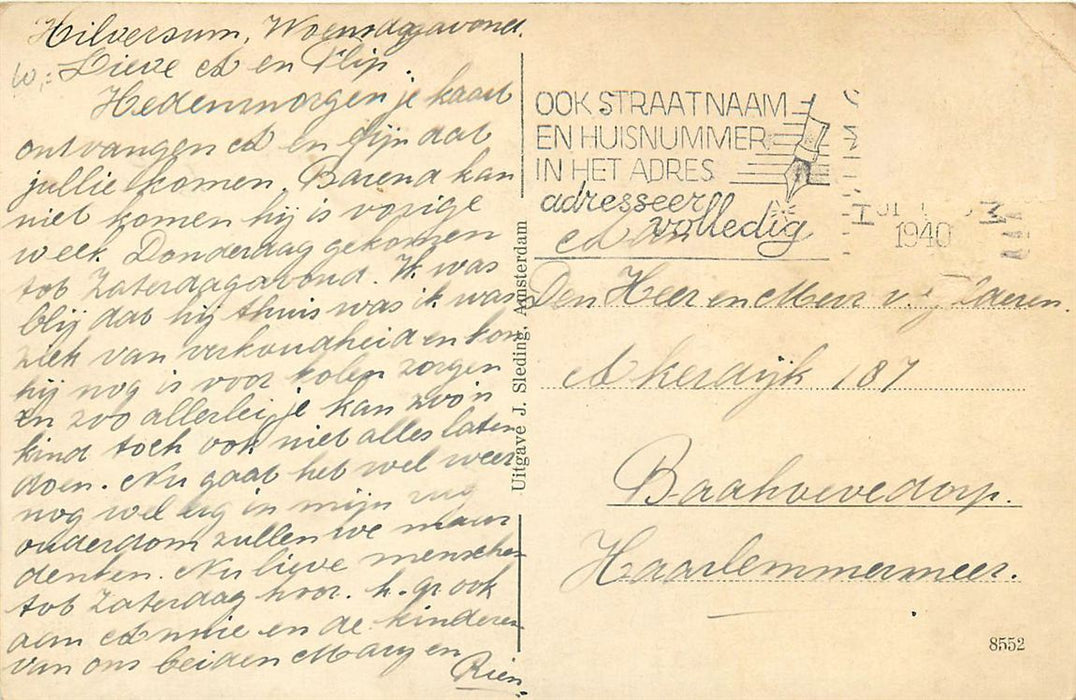 Hilversum, Woensdagavond.
Lieve A en Flip.
Hedenmorgen je kaart
ontvangen A en fijn dat
jullie komen. Barend kan
niet komen hij is vorige
week Donderdag gekomen
tot Zaterdagavond. Ik was
blij dat hij thuis was ik was
ziek van verkoudheid en kon
hij nog is voor kolen zorgen
en zoo allerlei je kan zoo'n
kind toch ook niet alles laten
doen. Nu gaat het wel weer
nog wel erg in mijn rug
ouderdom zullen we maar
denken. Nu lieve menschen
tot Zaterdag hoor. h. gr ook
aan Annie en de kinderen
van ons beiden Mary en
Rien
Uitgave J. Sleding, Amsterdam
OOK STRAATNAAM
EN HUISNUMMER
IN HET ADRES
adresseer
volledig
1940
Aan
Den Heer en Mevr v.
Akerdijk 187
Baahoevedorp.
Haarlemmermeer.
8552